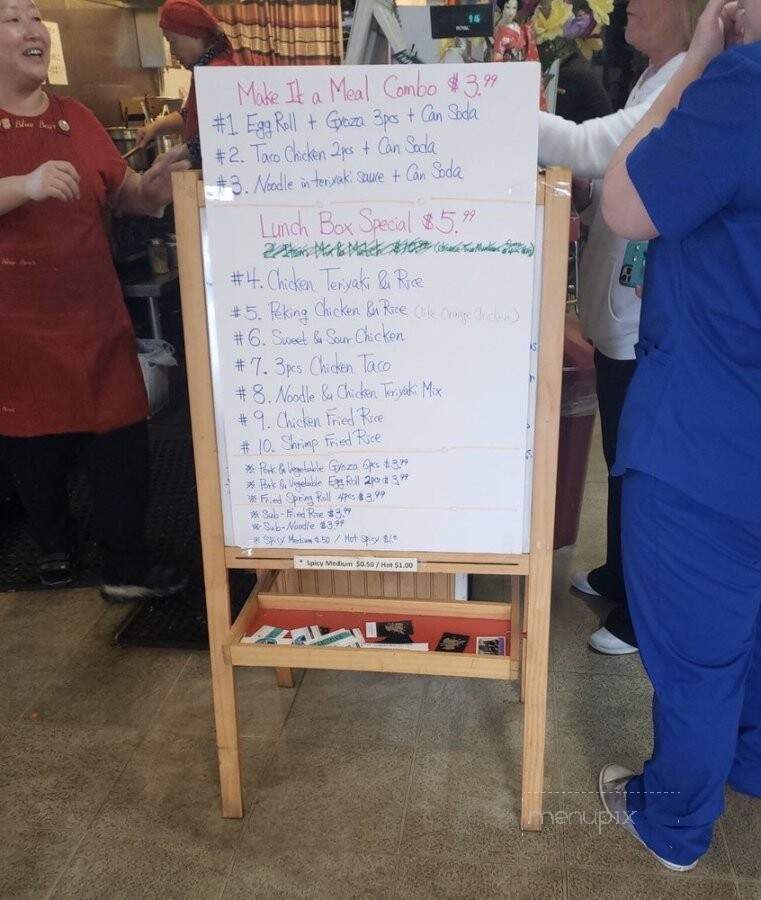 Blue Bear
ROYAL
Make It a Meal Combo $3.99
#1. Egg Roll + Gyoza 3pcs + Can Soda
#2. Taco Chicken 2pcs + Can Soda
#3. Noodle in teriyaki sauce + Can Soda
Lunch Box Special $5.99
2 Item Mix & Match
#4. Chicken Teriyaki & Rice
#5. Peking Chicken & Rice (like Orange Chicken)
#6. Sweet & Sour Chicken
#7. 3pcs Chicken Taco
#8. Noodle & Chicken Teriyaki Mix
#9. Chicken Fried Rice
#10. Shrimp Fried Rice
※ Pork & Vegetable Gyoza 6pcs $3.99
※ Pork & Vegetable Egg Roll 2pcs $3.99
※ Fried Spring Roll 4pcs $3.99
※ Sub-Fried Rice $3.99
※ Sub-Noodle $3.99
※ Spicy Medium $.50 / Hot Spicy $1.00
* Spicy Medium $0.50 / Hot $1.00
menupix